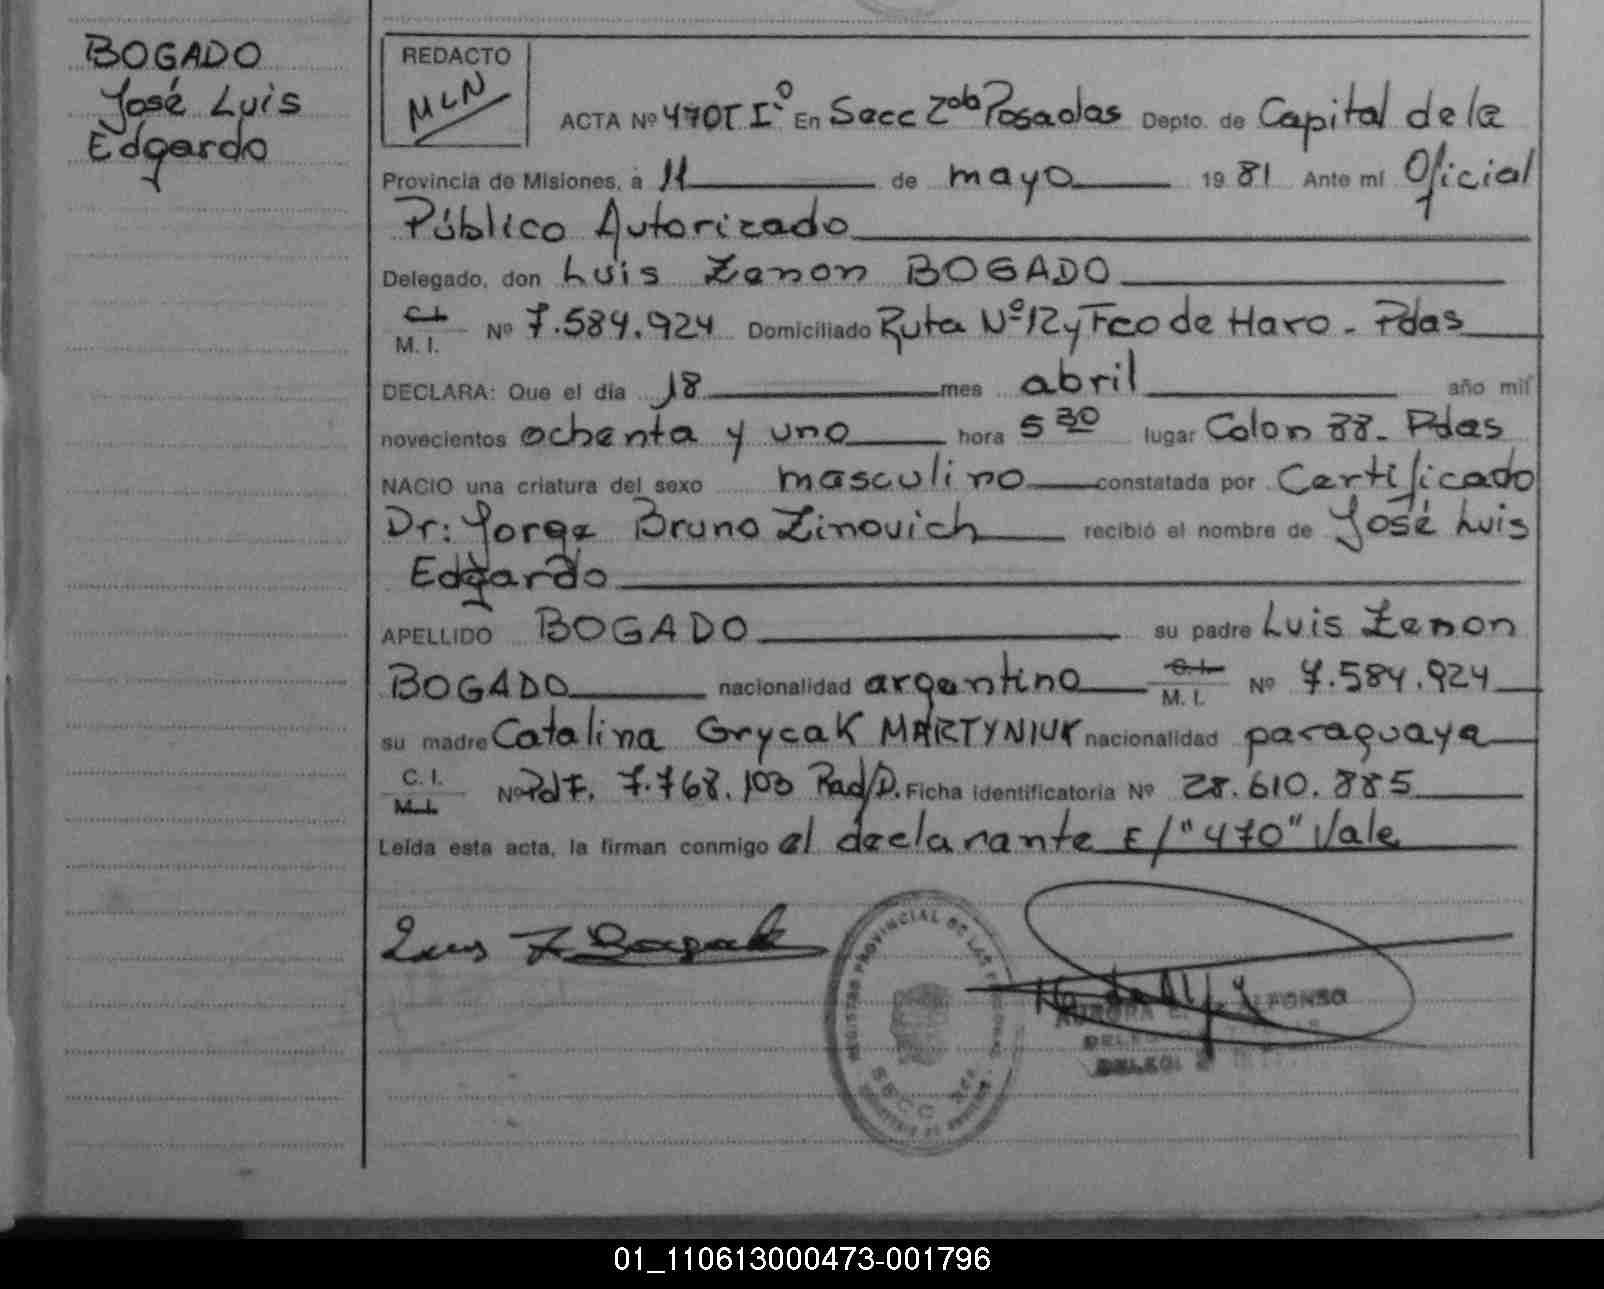 BOGADO
José Luis
Edgardo
REDACTO
MLN
ACTA Nº 470 T Iº En Secc 2da Posadas Depto. de Capital de la
Provincia de Misiones, a 11 de mayo 19 81 Ante mi Oficial
Público Autorizado
Delegado, don Luis Zenon BOGADO
C.I.
M. I. Nº 7.584.924 Domiciliado Ruta Nº 12 y Fco de Haro - Pdas
DECLARA: Que el día 18 mes abril año mil
novecientos ochenta y uno hora 5 30 lugar Colon 88 - Pdas
NACIO una criatura del sexo masculino constatada por Certificado
Dr: Jorge Bruno Zinovich recibió el nombre de José Luis
Edgardo
APELLIDO BOGADO su padre Luis Zenon
BOGADO nacionalidad argentino C.I. M. I. Nº 7.584.924
su madre Catalina Grycak MARTYNIUK nacionalidad paraguaya
C. I.
M.I. Nº PdF. 7.768.103 Rad/D. Ficha identificatoria Nº 28.610.885
Leída esta acta, la firman conmigo el declarante E/"470" Vale
Luis Z Bogado
REGISTRO PROVINCIAL DE LAS PERSONAS
SECC 2da
AURORA E. ALFONSO
01_110613000473-001796